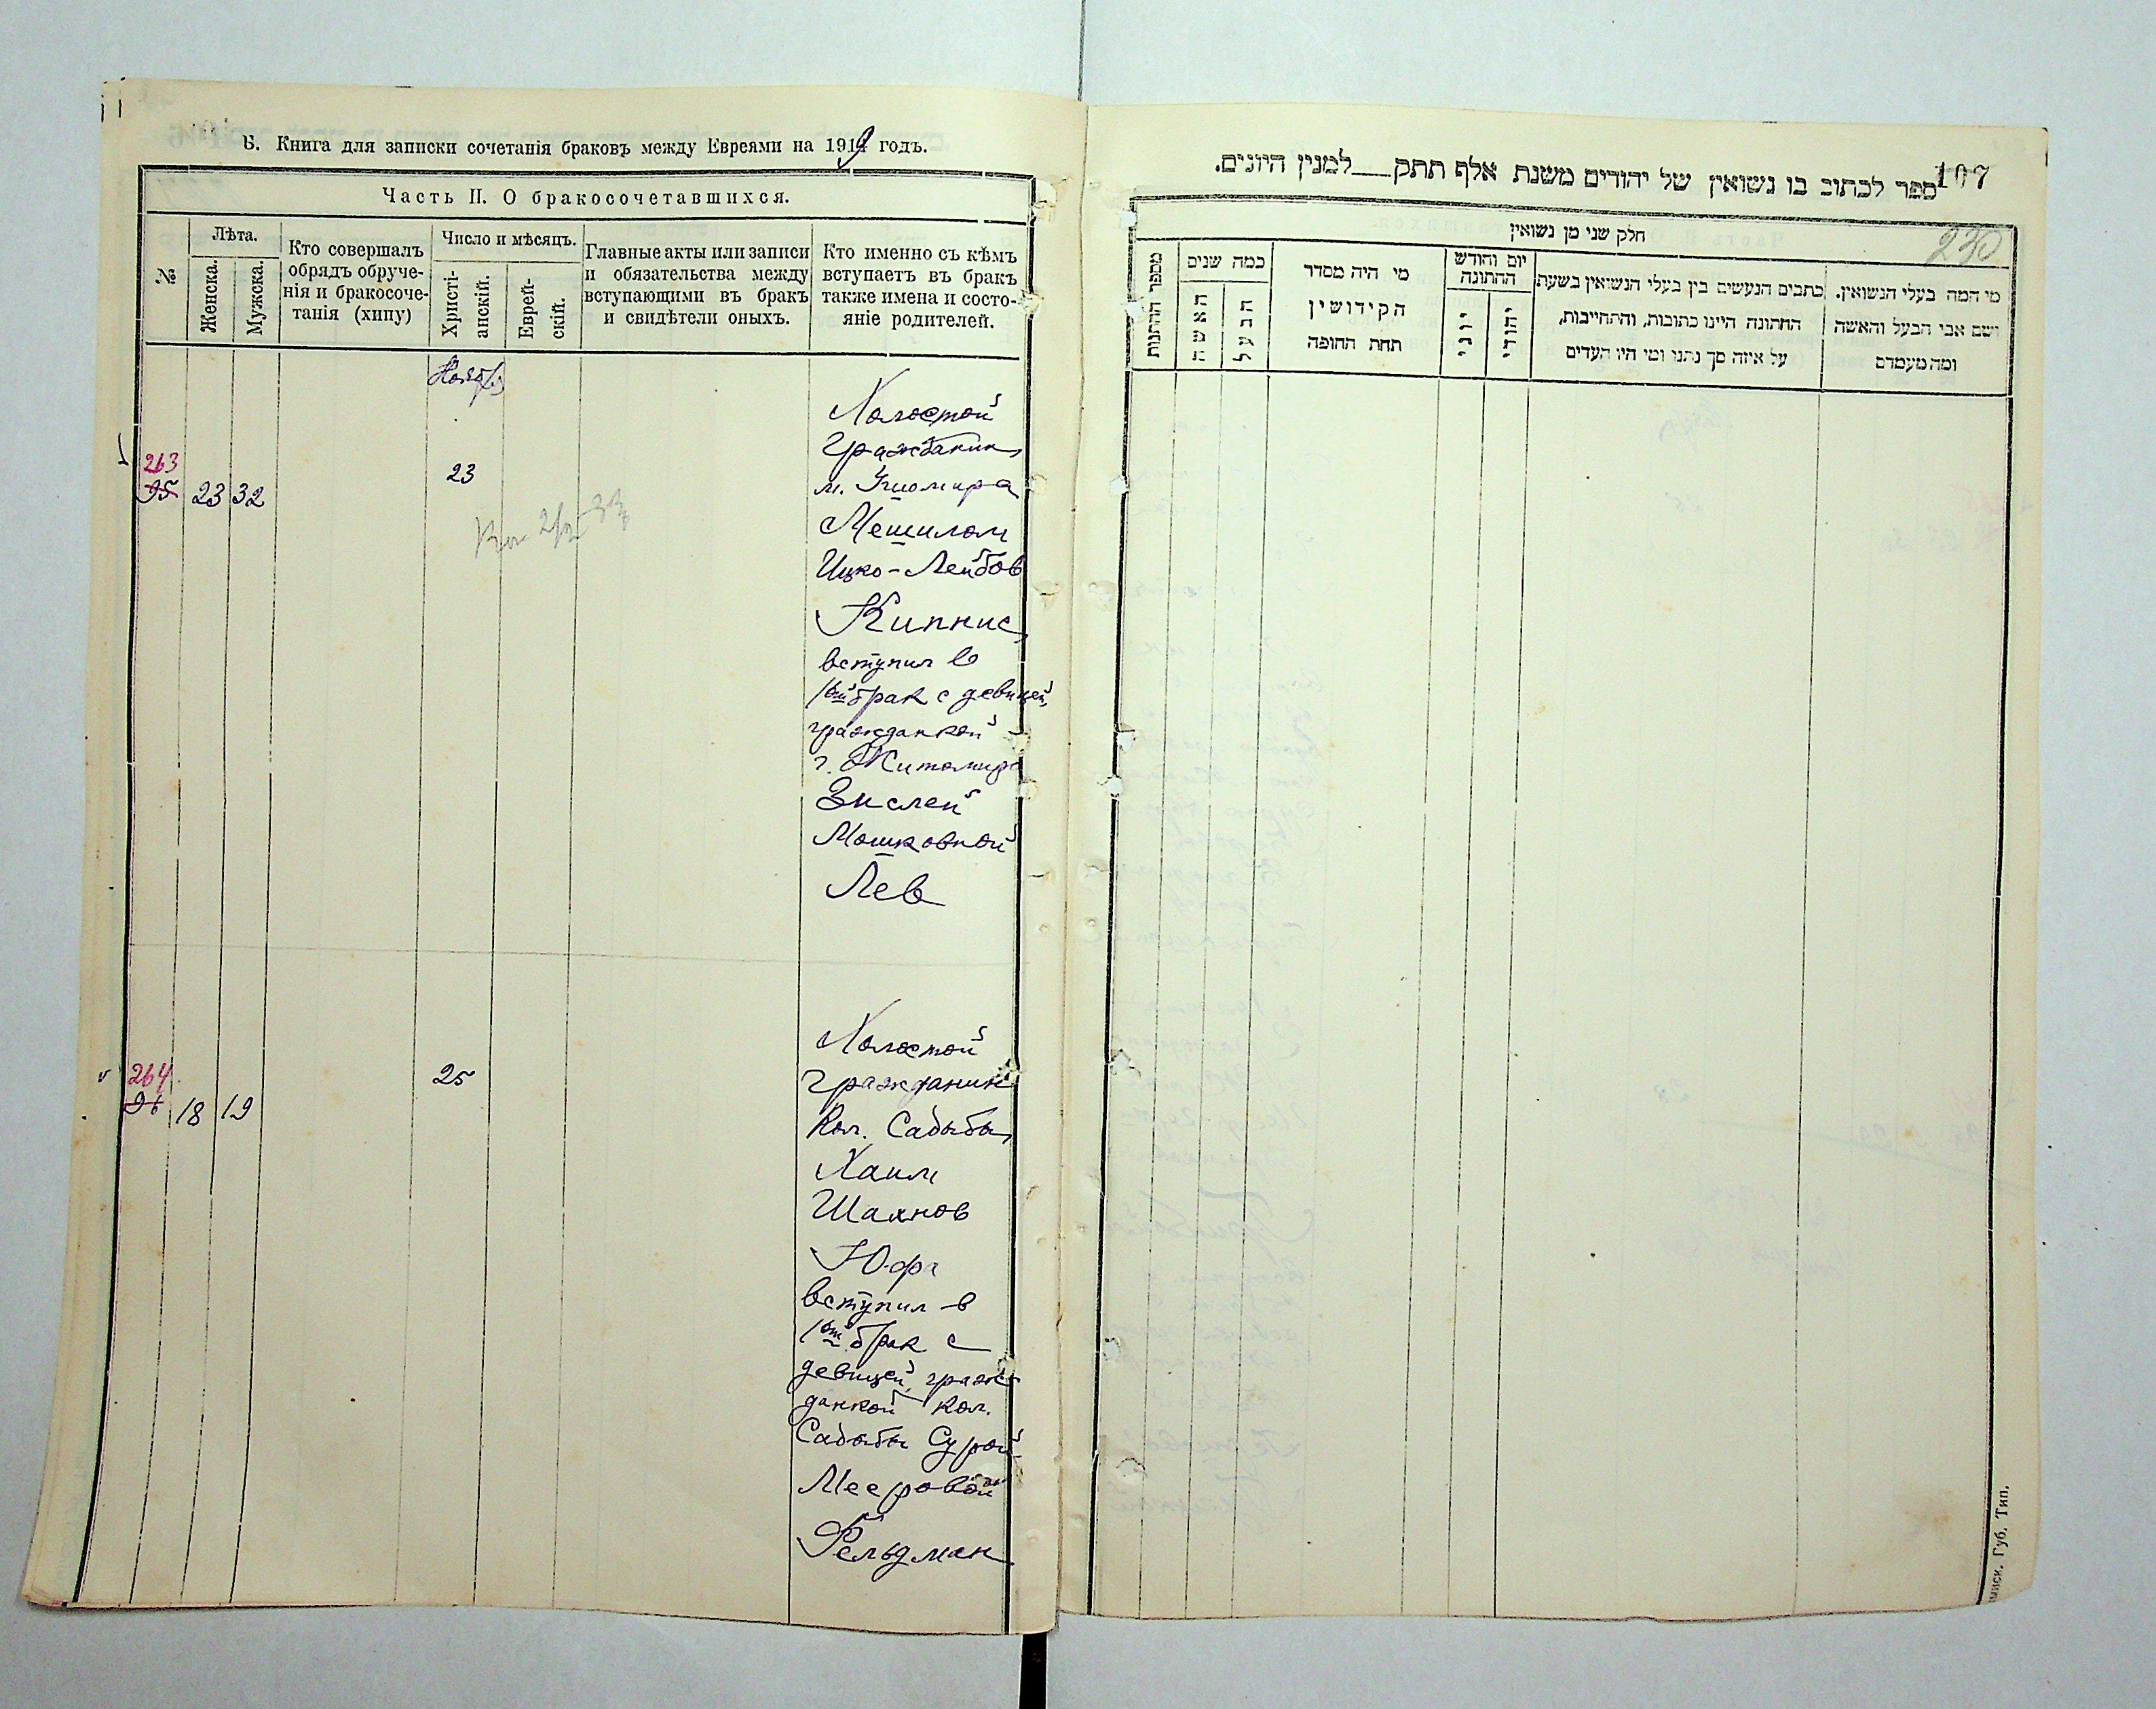 Б. Книга для записки сочетанія браковъ между Евреями на 1919 годъ.
Часть II. О бракосочетавшихся.
№
Лѣта.
Женска.
Мужска.
Кто совершалъ
обрядъ обруче-
нія и бракосоче-
танія (хипу)
Число и мѣсяцъ.
Христі-
анскій.
Еврей-
скій.
Главные акты или записи
и обязательства между
вступающими въ бракъ
и свидѣтели оныхъ.
Кто именно съ кѣмъ
вступаетъ въ бракъ
также имена и состо-
яніе родителей.
Ноябрь
263
95 23 32
23
Холостой
Гражданин
м. Ушомира
Мешилом
Ицко-Лейбов
Кипнис
вступил в
1ый брак с девицей,
гражданкой
г. Житомира
Зислей
Мошковной
Лев
264
96 18 19
25
Холостой
Гражданин
Кол. Садыбы
Хаим
Шахнов
Юфа
вступил в
1ый брак с
девицей граж
данкой кол.
Садыбы Сурой
Мееровой
Фельдман
107
ספר לכתוב בו נשואין של יהודים משנת אלף תתק למנין היונים.
230
חלק שני מן נשואין
מספר החתונות
כמה שנים
האשה
הבעל
מי היה מסדר
הקידושין
תחת החופה
יום וחודש
החתונה
יוני
יהודי
כתבים הנעשים בין בעלי הנשואין בשעת
החתונה היינו כתובות, והתחייבות,
על איזה סך נתנו ומי היו העדים
מי המה בעלי הנשואין.
ושם אבי הבעל והאשה
ומה מעמדם
Губ. Тип.